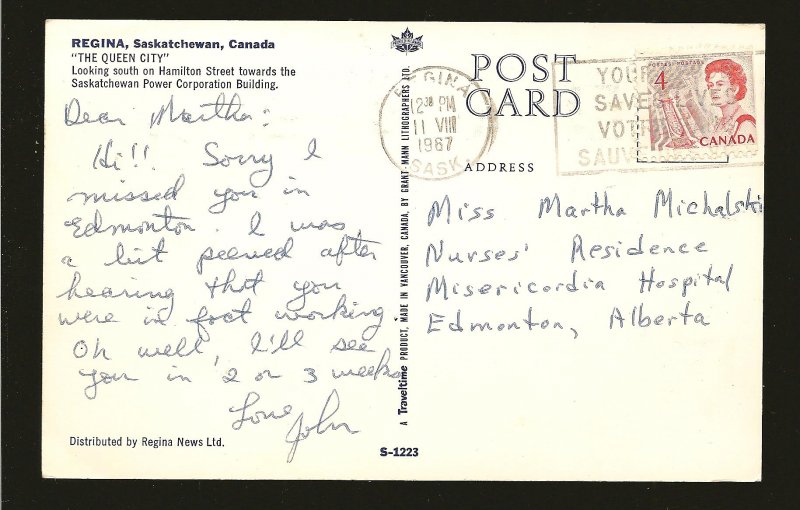 REGINA, Saskatchewan, Canada
"THE QUEEN CITY"
Looking south on Hamilton Street towards the
Saskatchewan Power Corporation Building.
Dear Martha:
Hi!! Sorry I
missed you in
Edmonton. I was
a bit peeved after
hearing that you
were in fact working
Oh well, I'll see
you in 2 or 3 weeks
Love
John
Distributed by Regina News Ltd.
A Traveltime PRODUCT, MADE IN VANCOUVER, CANADA, BY GRANT-MANN LITHOGRAPHERS LTD.
S-1223
POST
CARD
ADDRESS
REGINA
12 30 PM
11 VIII
1967
SASK.
YOUR
SAVE
VOTR
SAUV
4
CANADA
Miss Martha Michalski
Nurses' Residence
Misericordia Hospital
Edmonton, Alberta